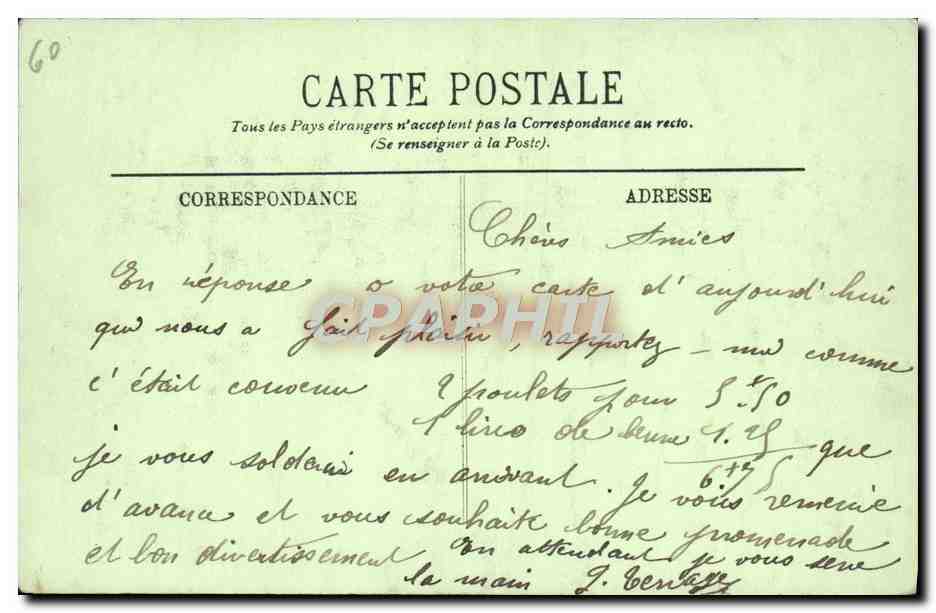 60
CARTE POSTALE
Tous les Pays étrangers n'acceptent pas la Correspondance au recto.
(Se renseigner à la Poste).
CORRESPONDANCE
ADRESSE
Chers Amies
En réponse a votre carte d'aujourd'hui
CPAPHIL
qui nous a fait plaisir, rapportez-moi comme
c'était convenu 2 poulets pour 5f.50
1 livre de beurre 1.25 que
6f75
je vous solderai en arrivant. Je vous remercie
d'avance et vous souhaite bonne promenade
et bon divertissement En attendant je vous serre
la main J.